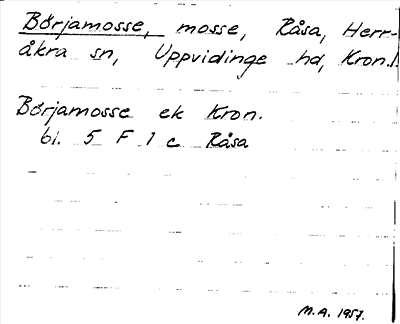 Börjamosse, mosse, Råsa, Herr-
åkra sn, Uppvidinge hd, Kron.l.
Börjamosse ek Kron.
bl. 5 F 1 c Råsa
M.A. 1957.